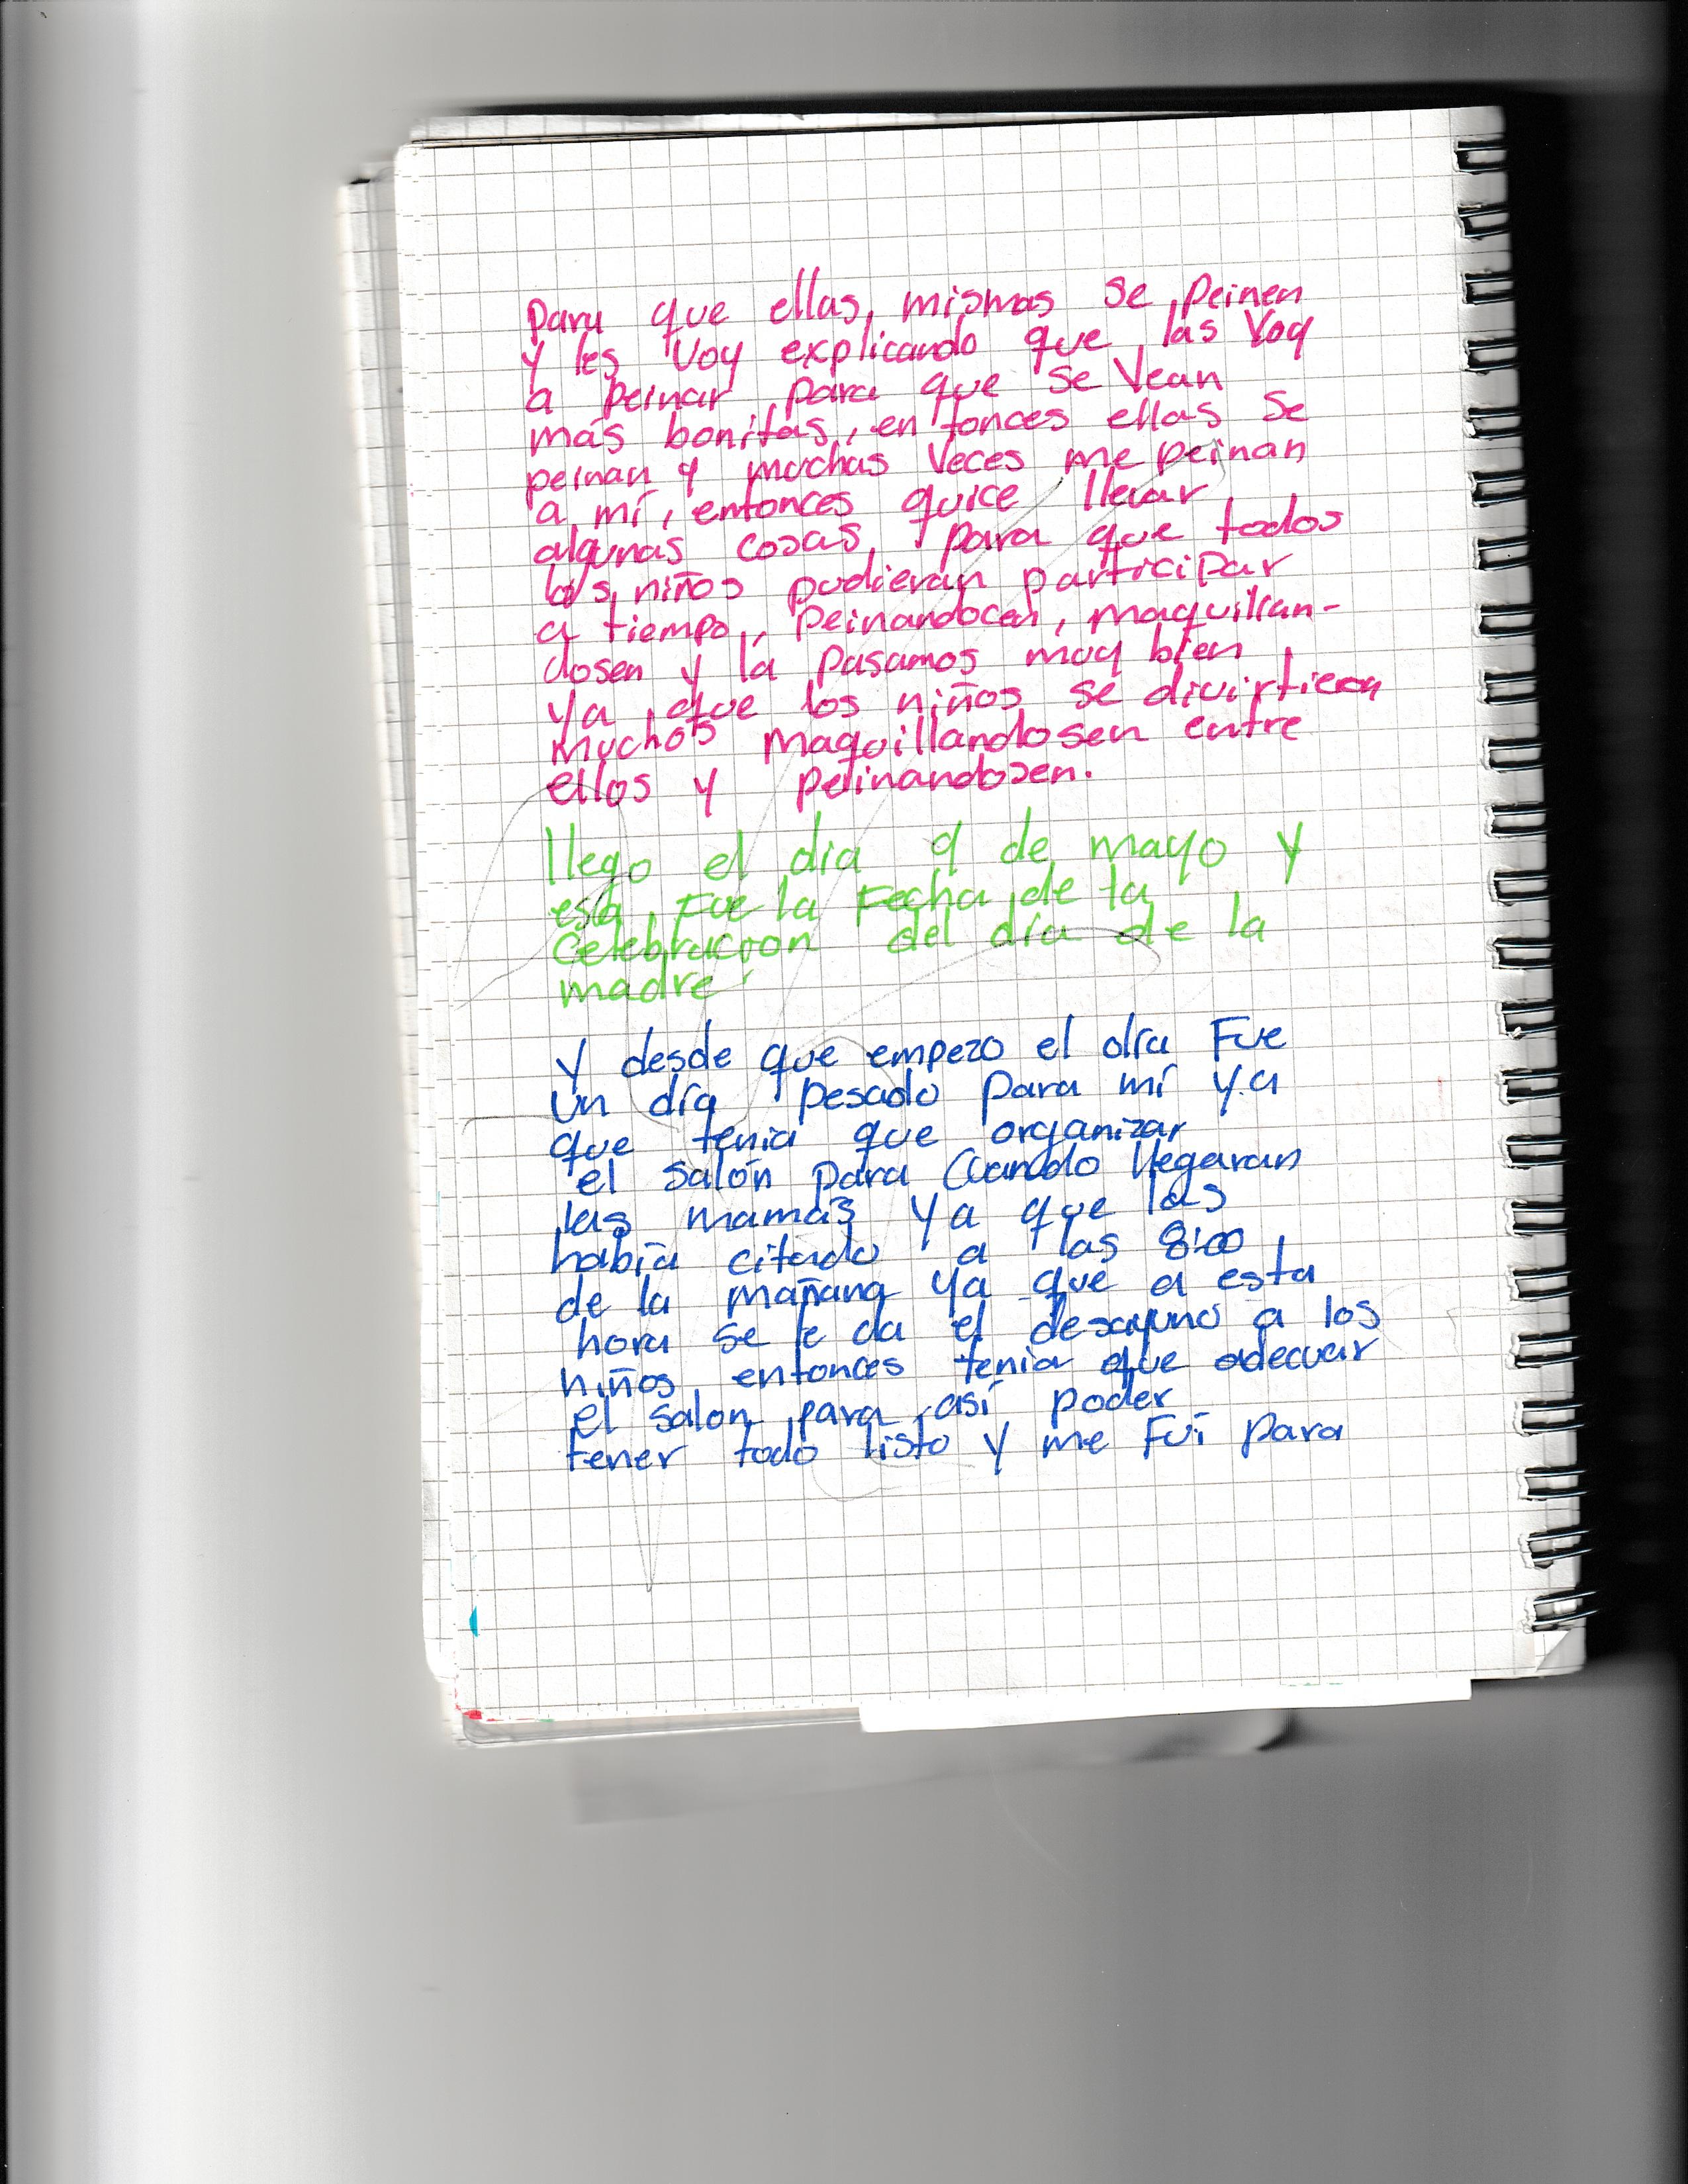 para que ellas mismas se peinen
y les voy explicando que las voy
a peinar para que se vean
más bonitas, entonces ellas se
peinan y muchas veces me peinan
a mí, entonces quice llevar
algunas cosas para que todos
los niños pudieran participar
a tiempo, peinandocen, maquillan-
dosen y la pasamos muy bien
ya que los niños se divirtieron
muchos maquillandosen entre
ellos y peinandosen.
llego el dia 9 de mayo y
esta fue la fecha de la
celebracion del día de la
madre
y desde que empezo el día fue
un día pesado para mí ya
que tenia que organizar
el salón para cuando llegaran
las mamás ya que las
había citado a las 8:00
de la mañana ya que a esta
hora se le da el desayuno a los
niños entonces tenia que adecuar
el salon para así poder
tener todo listo y me fui para